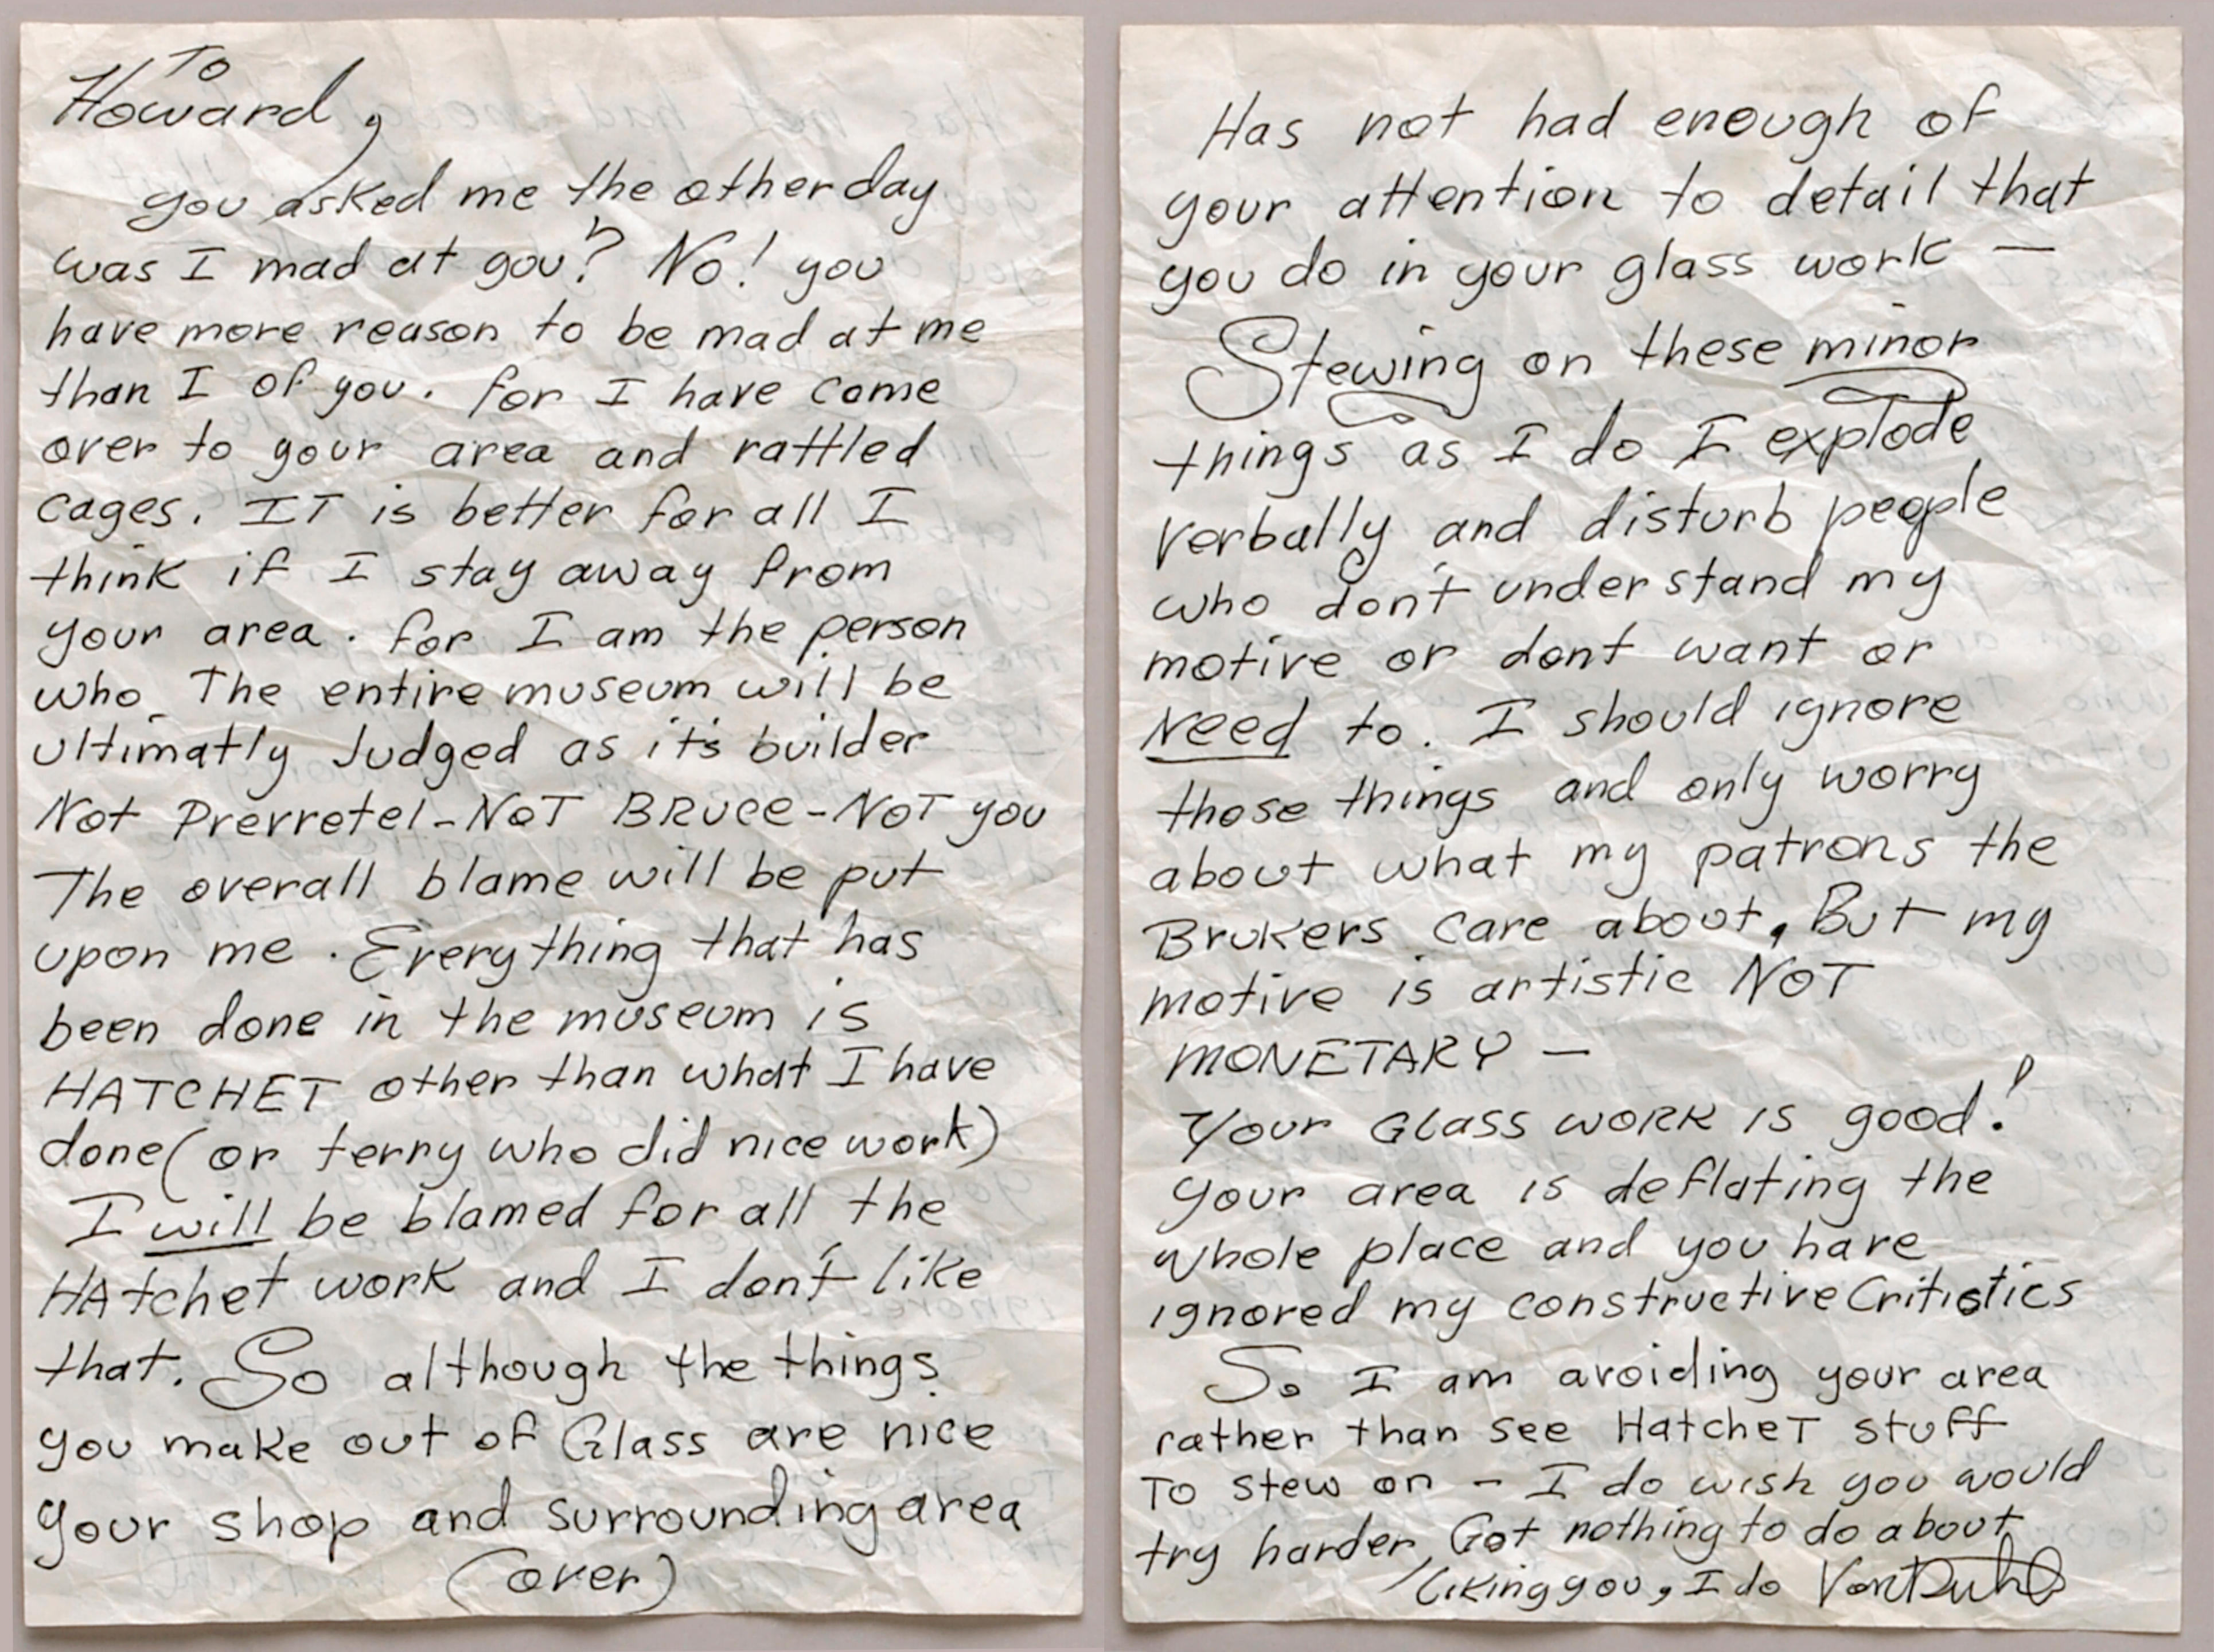 To
Howard,
you asked me the other day
was I mad at you? No! you
have more reason to be mad at me
than I of you. for I have come
over to your area and rattled
cages. IT is better for all I
think if I stay away from
your area. for I am the person
who The entire museum will be
ultimatly Judged as it's builder
Not Prevretel-NOT BRUCE-NOT you
The overall blame will be put
upon me. Everything that has
been done in the museum is
HATCHET other than what I have
done (or terry who did nice work)
I will be blamed for all the
HAtchet work and I don't like
that. So although the things
you make out of Glass are nice
your shop and surrounding area
(over)
Has not had enough of
your attention to detail that
you do in your glass work —
Stewing on these minor
things as I do I explode
verbally and disturb people
who don't understand my
motive or dont want or
Need to. I should ignore
those things and only worry
about what my patrons the
Brukers care about, But my
motive is artistic NOT
MONETARY —
Your Glass work is good!
your area is deflating the
whole place and you have
ignored my constructive Critistics
So I am avoiding your area
rather than see HatcheT stuff
To stew on - I do wish you would
try harder, Got nothing to do about
liking you, I do